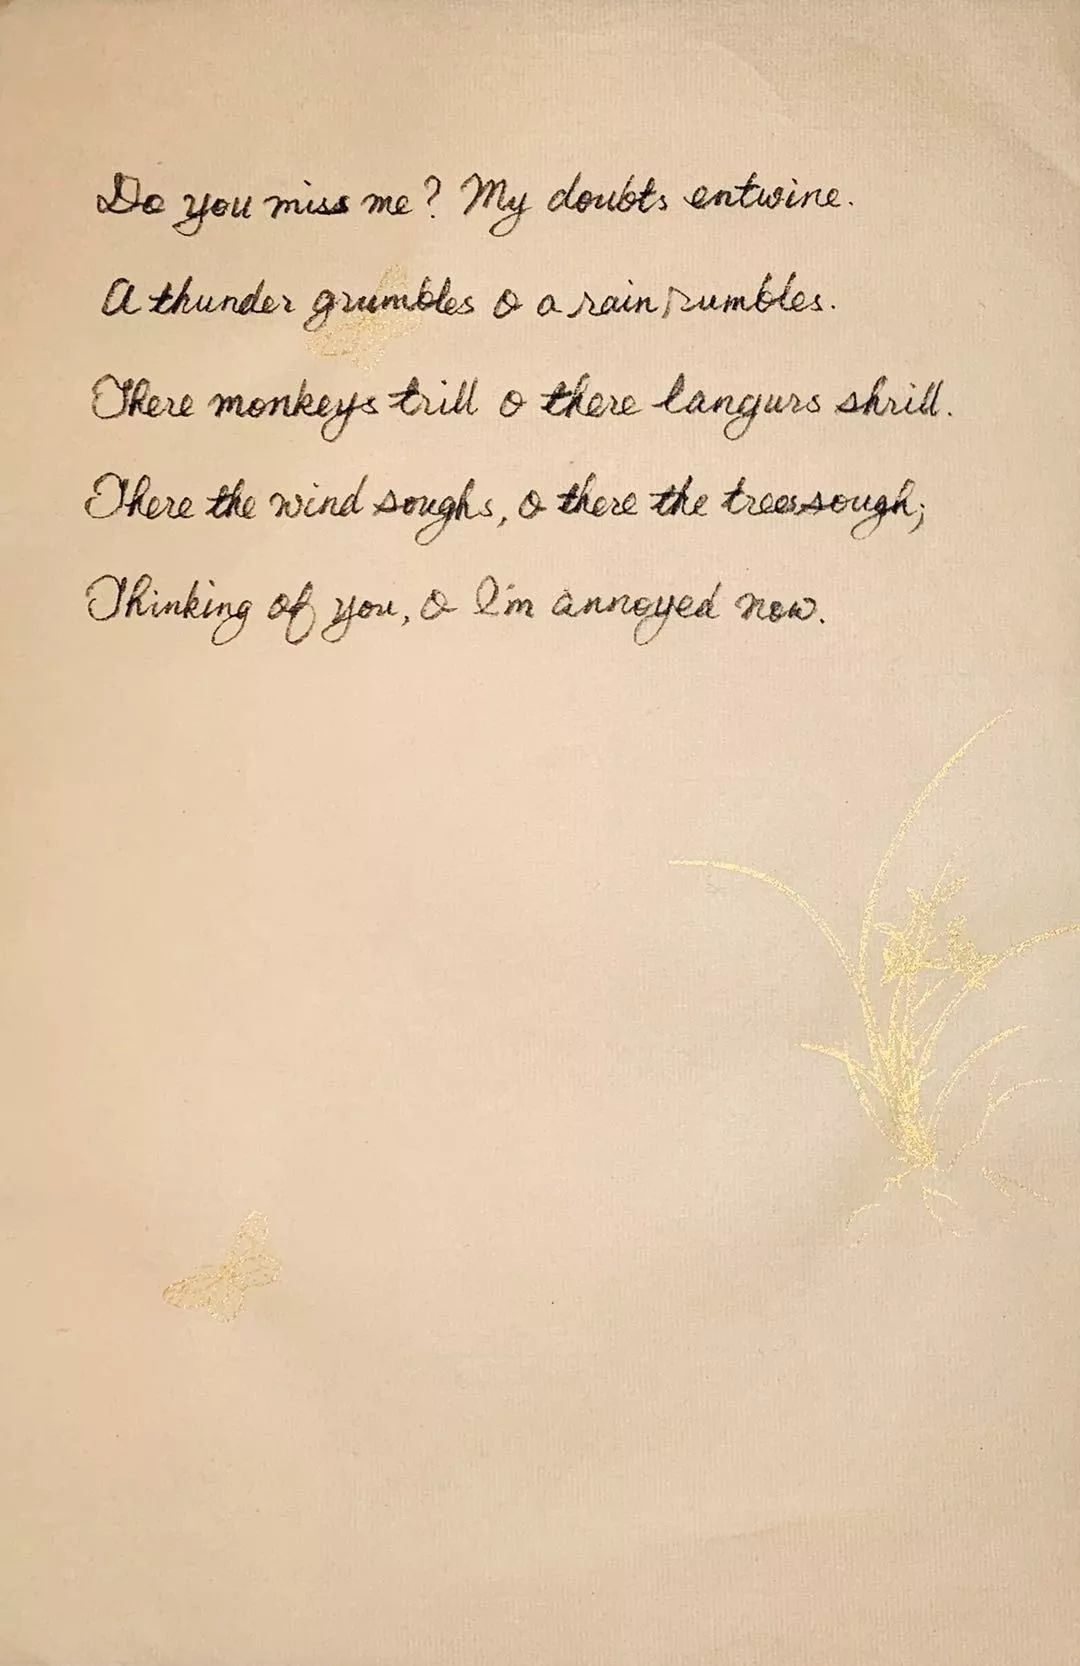 Do you miss me? My doubts entwine.
A thunder grumbles o a rain rumbles.
There monkeys trill o there langurs shrill.
There the wind soughs, o there the trees sough;
Thinking of you, o I'm annoyed now.